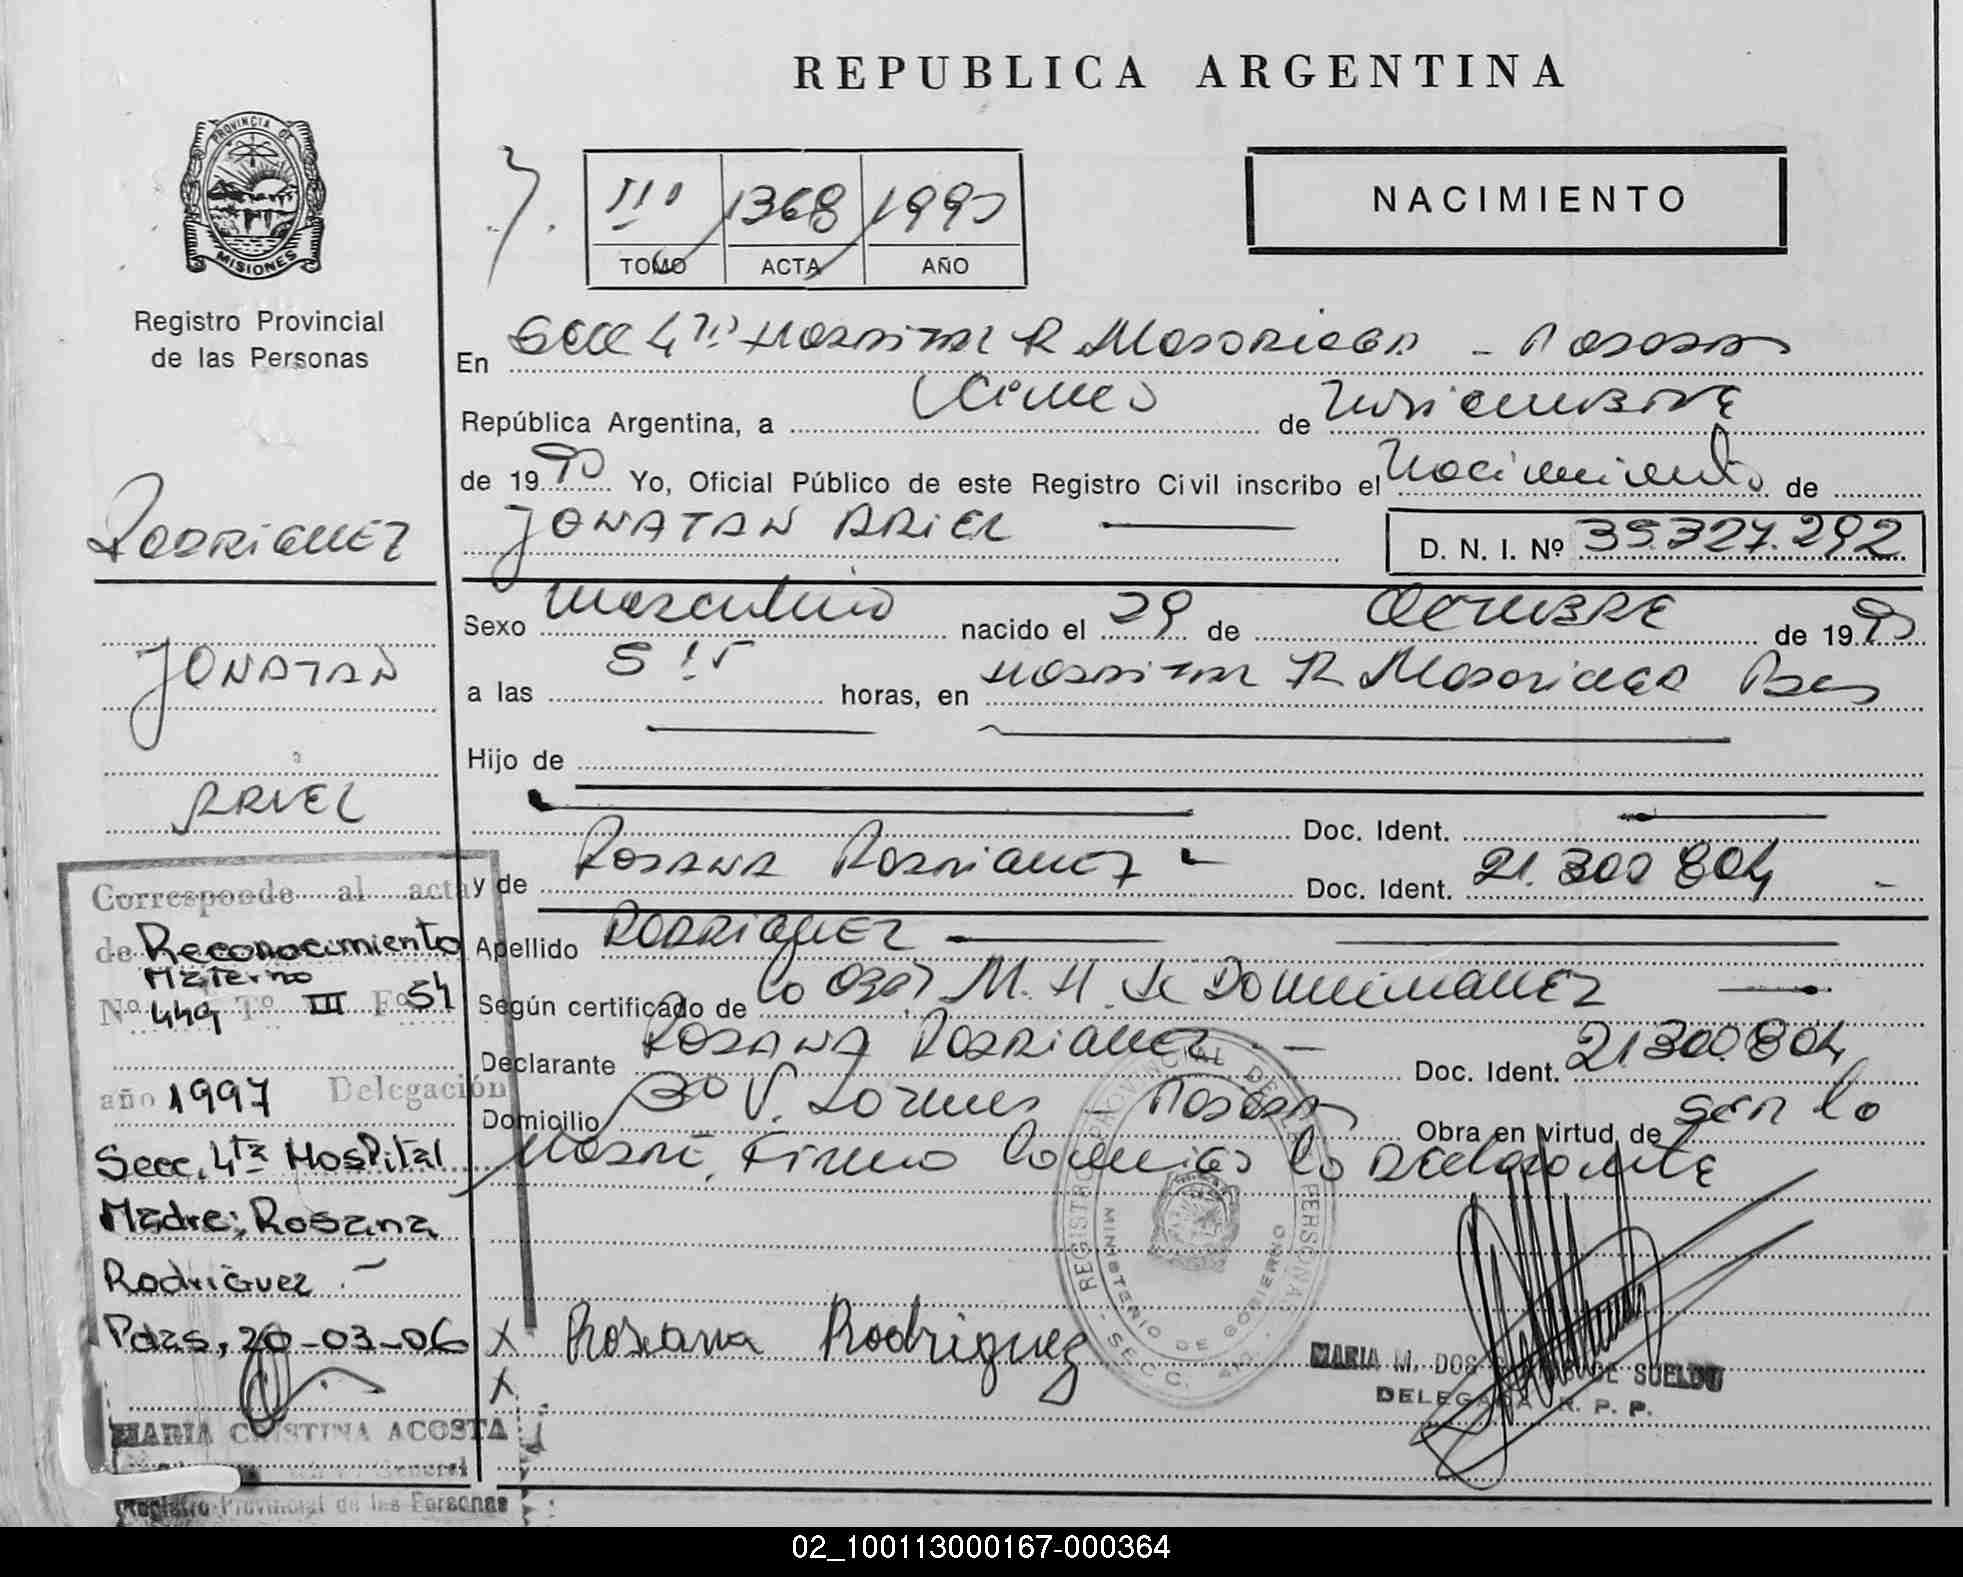 REPUBLICA ARGENTINA
PROVINCIA DE
MISIONES
Registro Provincial
de las Personas
III 1368 1990
TOMO ACTA AÑO
NACIMIENTO
En Secc 4ta Hospital R Madariaga - Posadas
República Argentina, a cinco de Noviembre
de 1990 Yo, Oficial Público de este Registro Civil inscribo el Nacimiento de
JONATAN ARIEL
D. N. I. Nº 35.327.292
Sexo Masculino nacido el 29 de OCTUBRE de 1990
a las horas, en Hospital R Madariaga Pdas
Hijo de
Doc. Ident.
y de Rosana Rodriguez Doc. Ident. 21.300804
Apellido RODRIGUEZ
Según certificado de la M. H. de Dominguez
Declarante Rosana Rodriguez - Doc. Ident. 21.300.804
Domicilio Bº V. - Posadas Obra en virtud de ser la
Madre, Firma la Declarante
X Rosana Rodriguez
X
REGISTRO PROVINCIAL DE LAS PERSONAS
MINISTERIO DE GOBIERNO
SECC.
MARIA M. DOS DE SUELDO
DELEGADA R. P. P.
RODRIGUEZ
JONATAN
ARIEL
Corresponde al acta
de Reconocimiento
Materno
Nº 449 Tº III Fº 54
año 1997 Delegación
Secc. 4ta Hospital
Madre: Rosana
Rodriguez.-
Pdas, 20-03-06
MARIA CRISTINA ACOSTA
General
Registro Provincial de las Personas
02_100113000167-000364